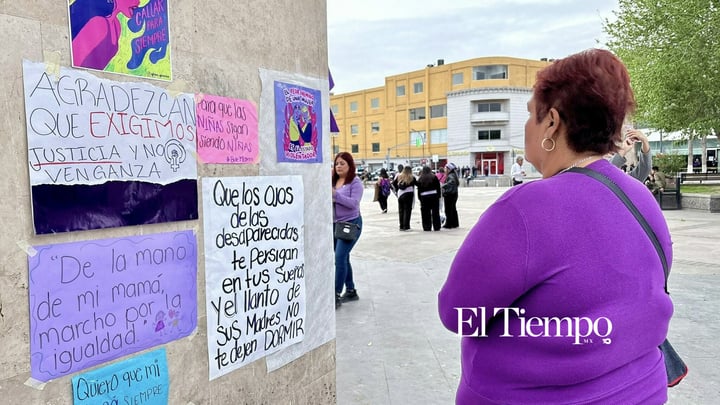 CALLAR PARA
SIEMPRE
AGRADEZCAN
QUE EXIGIMOS
JUSTICIA Y NO
VENGANZA
Para que las
NIÑAS sigan
siendo NIÑAS
"De la mano
de mi mamá,
marcho por la
igualdad."
Que los ojos
de las
desaparecidas
te persigan
en tus sueños
y el llanto de
sus Madres NO
te dejen DORMIR
Quiero que mi
SIEMPRE
El Tiempo
MX